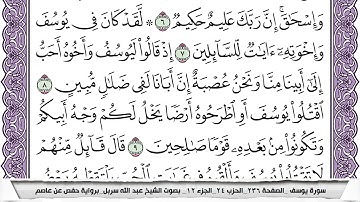 وَإِسْحَٰقَ ۚ إِنَّ رَبَّكَ عَلِيمٌ حَكِيمٌ ٦ ۞ لَّقَدْ كَانَ فِى يُوسُفَ
وَإِخْوَتِهِۦٓ ءَايَٰتٌ لِّلسَّآئِلِينَ ٧ إِذْ قَالُوا۟ لَيُوسُفُ وَأَخُوهُ أَحَبُّ
إِلَىٰٓ أَبِينَا مِنَّا وَنَحْنُ عُصْبَةٌ إِنَّ أَبَانَا لَفِى ضَلَٰلٍ مُّبِينٍ ٨
ٱقْتُلُوا۟ يُوسُفَ أَوِ ٱطْرَحُوهُ أَرْضًا يَخْلُ لَكُمْ وَجْهُ أَبِيكُمْ
وَتَكُونُوا۟ مِنۢ بَعْدِهِۦ قَوْمًا صَٰلِحِينَ ٩ قَالَ قَآئِلٌ مِّنْهُمْ
لَا تَقْتُلُوا۟ يُوسُفَ وَأَلْقُوهُ
سورة يوسف_ الصفحة ٢٣٦_ الحزب ٢٤_ الجزء ١٢_ بصوت الشيخ عبد الله سربل_ برواية حفص عن عاصم